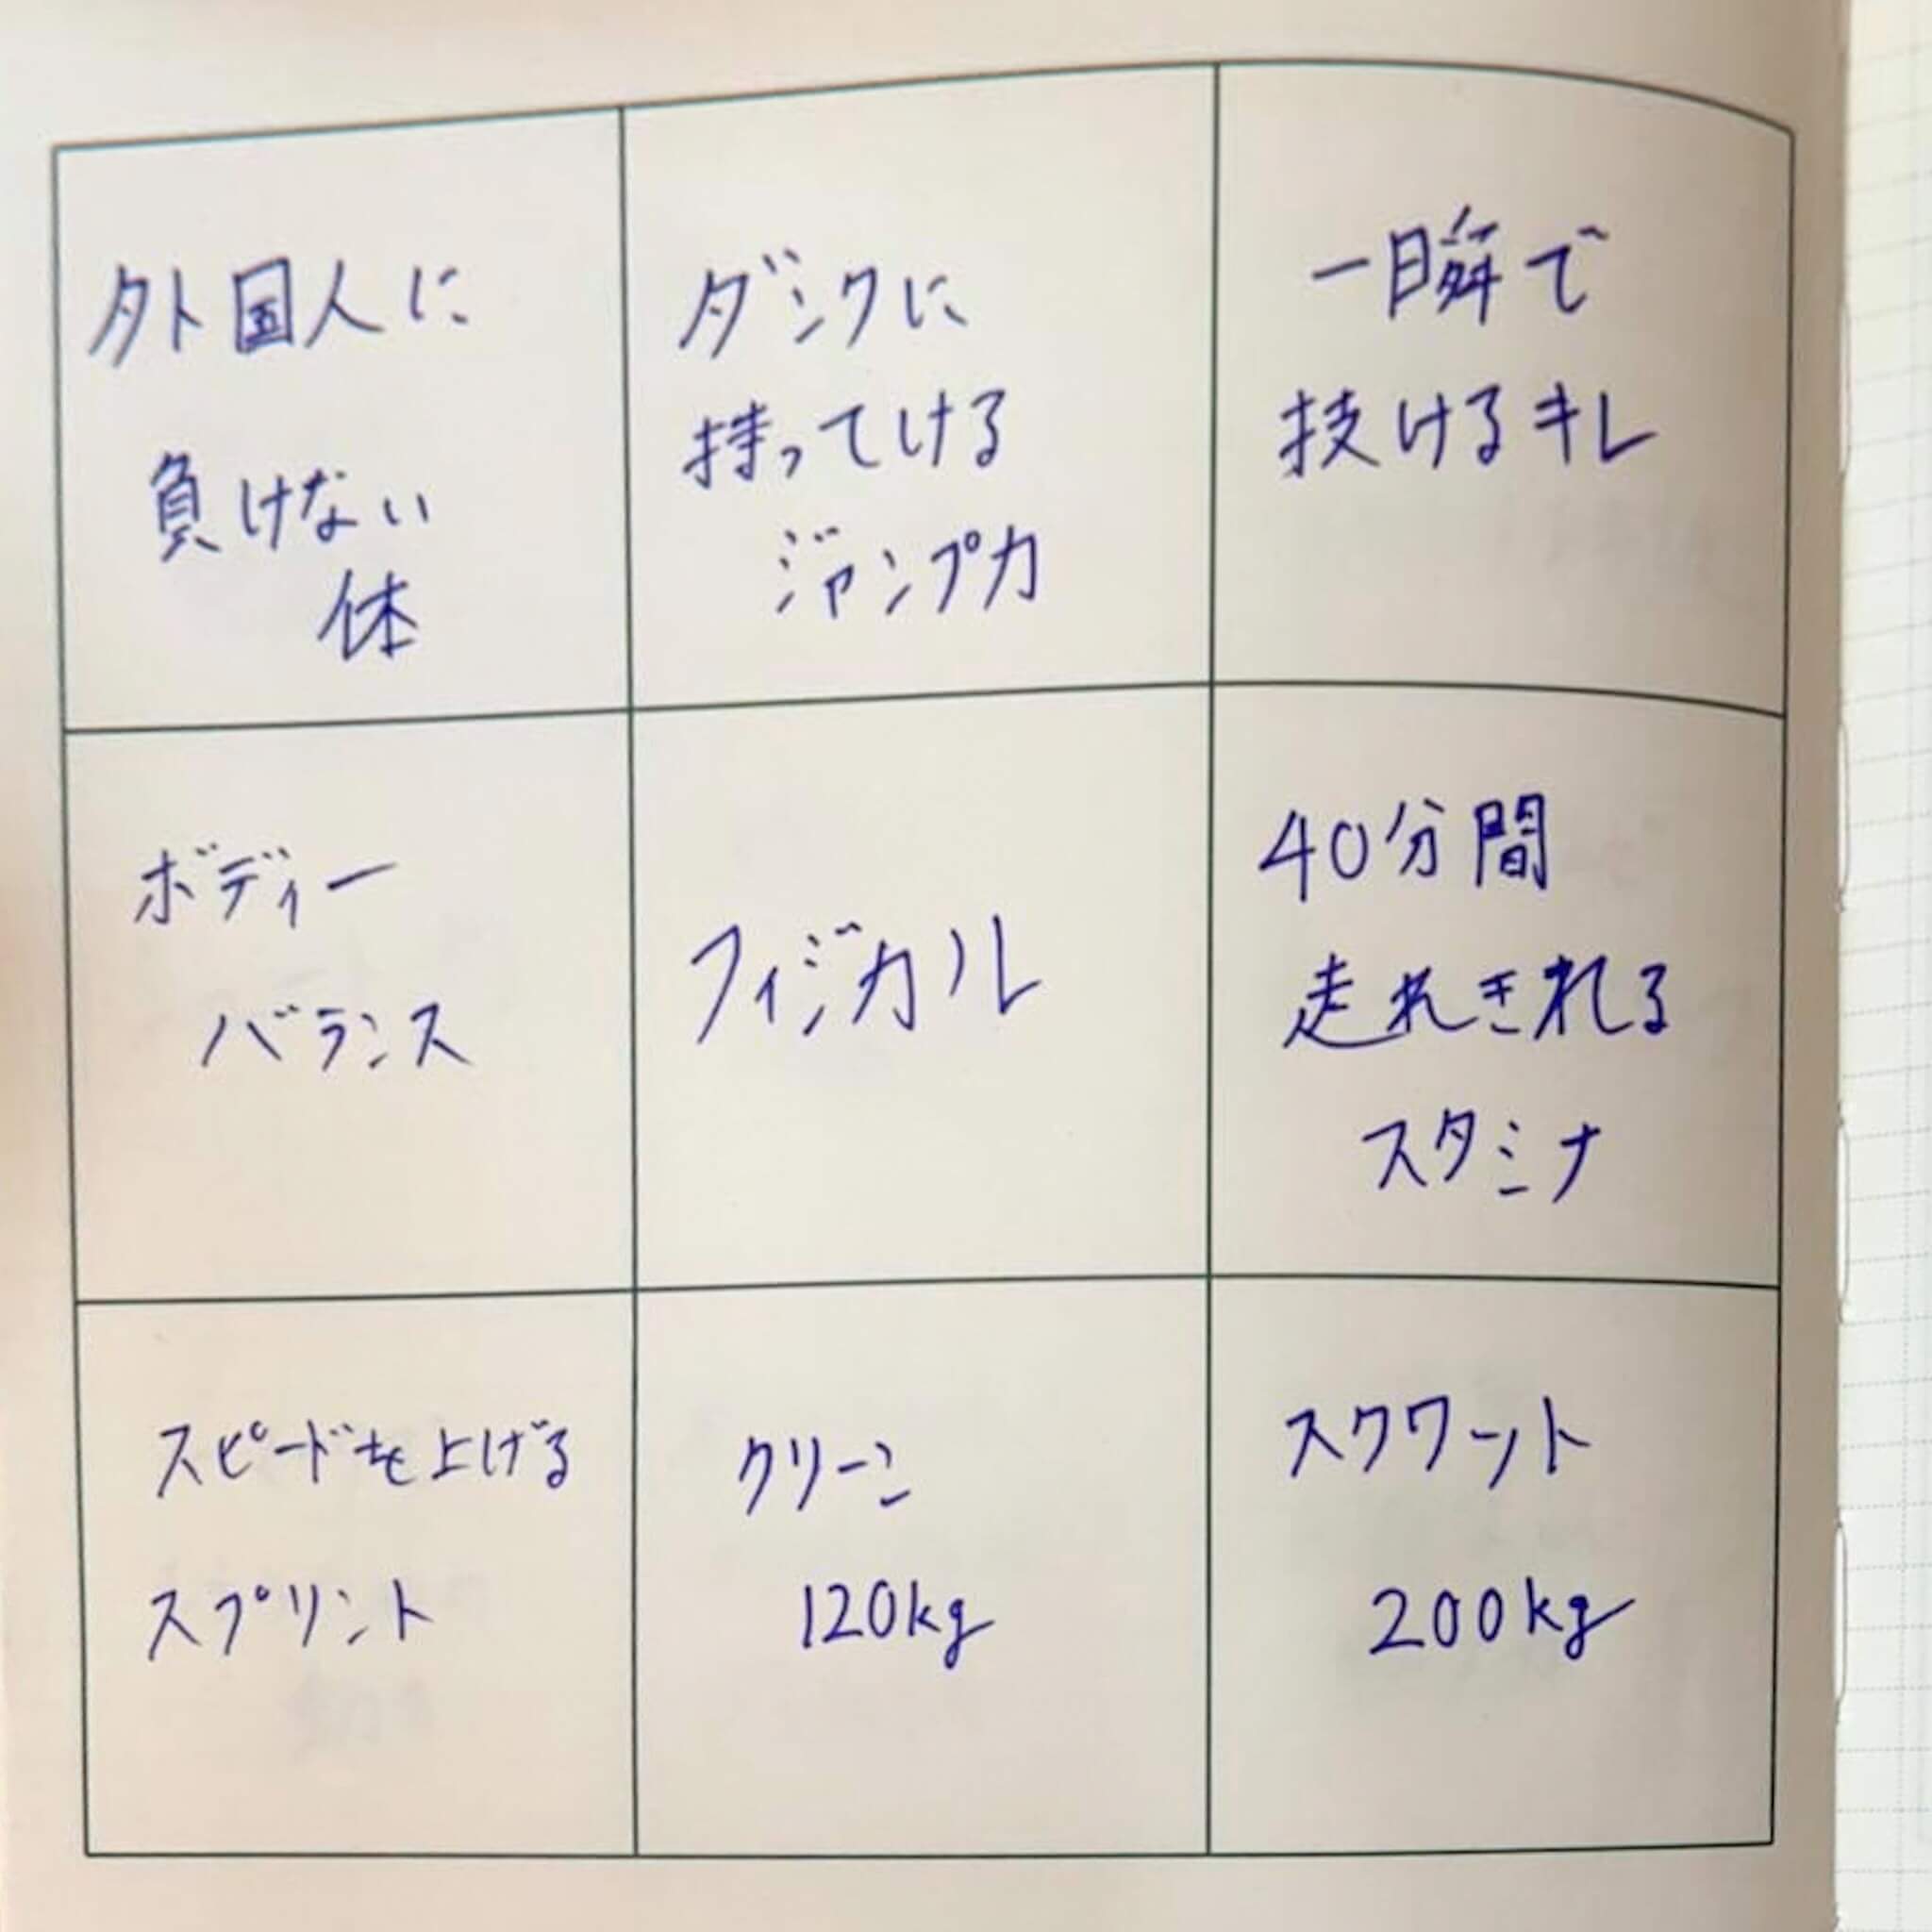 外国人に
負けない
体
ダンクに
持ってける
ジャンプ力
一瞬で
技けるキレ
ボディー
バランス
フィジカル
40分間
走れきれる
スタミナ
スピードを上げる
スプリント
クリーン
120kg
スクワット
200kg